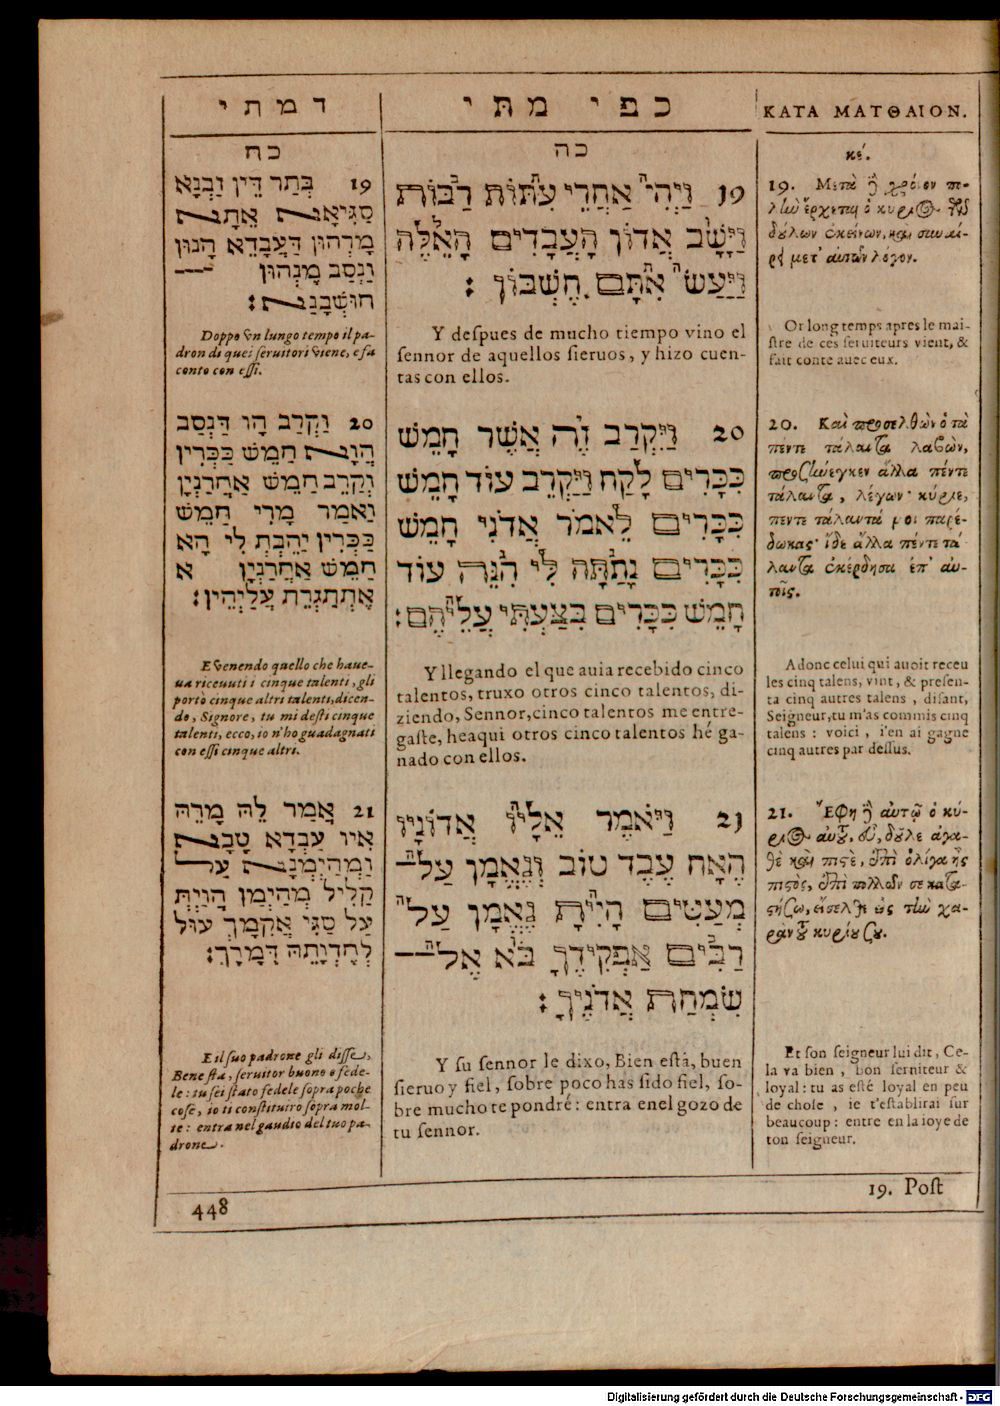 דמתי
כח
19 בְּתַר דֵּין זַבְנָא
סַגִּיאָא אֵתָא
מָרְהוּן דְּעַבְדֵא הָנוּן
וַנְסַב מָנְהוּן
חוּשְׁבָּנָא:
Doppo vn lungo tempo il pa-
dron di quei seruitori viene, e fa
conto con essi.
20 וַקְרַב הָו דַּנְסַב
הְוָא חַמֵשׁ כַּכְּרִין
וְקַרֵב חַמֵשׁ אַחֲרַנְיָן
וַאמַר מָרִי חַמֵשׁ
כַּכְּרִין יַהֲבְתְּ לִי הָא
חַמֵשׁ אַחֲרַנְיָן א
אֶתְתַּגְרֵת עֲלַיְהֵין:
E venendo quello che haue-
ua riceuuti i cinque talenti, gli
portò cinque altri talenti, dicen-
do, Signore, tu mi desti cinque
talenti, ecco, io n'ho guadagnati
con essi cinque altri.
21 אֲמַר לֵהּ מָרֵהּ
אִיו עַבְדָא טָבָא
וַמְהַיְמְנָא עַל
קַלִיל מְהַיְמַן הֲוַיְתְּ
עַל סַגִּי אֲקִמָךְ עוּל
לְחַדְוָתֵהּ דְּמָרָךְ:
E il suo padrone gli disse,
Bene sta, seruitor buono e fede-
le: tu sei stato fedele sopra poche
cose, io ti constituiro sopra mol-
te: entra nel gaudio del tuo pa-
drone.
448
כפי מתי
כה
19 וַיְהִי אַחֲרֵי עִתּוֹת רַבּוֹת
וַיָּשָׁב אֲדוֹן הָעֲבָדִים הָאֵלֶּה
וַיַּעַשׂ אִתָּם חֶשְׁבּוֹן:
Y despues de mucho tiempo vino el
sennor de aquellos sieruos, y hizo cuen-
tas con ellos.
20 וַיִּקְרַב זֶה אֲשֶׁר חָמֵשׁ
כִּכָּרִים לָקַח וַיַּקְרֵב עוֹד חָמֵשׁ
כִּכָּרִים לֵאמֹר אֲדֹנִי חָמֵשׁ
כִּכָּרִים נָתַתָּה לִּי הִנֵּה עוֹד
חָמֵשׁ כִּכָּרִים בִּצַּעְתִּי עֲלֵיהֶם:
Y llegando el que auia recebido cinco
talentos, truxo otros cinco talentos, di-
ziendo, Sennor, cinco talentos me entre-
gaste, heaqui otros cinco talentos hé ga-
nado con ellos.
21 וַיֹּאמֶר אֵלָיו אֲדוֹנָיו
הֶאָח עֶבֶד טוֹב וְנֶאֱמָן עַל־
מְעַטִּים הָיִיתָ נֶאֱמָן עַל
רַבִּים אַפְקִידֶךָ בֹּא אֶל־
שִׂמְחַת אֲדֹנֶיךָ:
Y su sennor le dixo, Bien està, buen
sieruo y fiel, sobre poco has sido fiel, so-
bre mucho te pondré: entra enel gozo de
tu sennor.
ΚΑΤΑ ΜΑΤΘΑΙΟΝ.
κέ.
19. Μετὰ ἢ χρόνον πο-
λὺν ἔρχεται ὁ κύριος τῶν
δούλων ἐκείνων, καὶ συναί-
ρει μετ' αὐτῶν λόγον.
Or long temps apres le mai-
stre de ces seruiteurs vient, &
fait conte auec eux.
20. Καὶ προσελθὼν ὁ τὰ
πέντε τάλαντα λαβὼν,
προσήνεγκεν ἄλλα πέντε
τάλαντα, λέγων· κύριε,
πεντε τάλαντά μοι παρέ-
δωκας· ἴδε ἄλλα πέντε τά-
λαντα ἐκέρδησα ἐπ' αὐ-
τοῖς.
Adonc celui qui auoit receu
les cinq talens, vint, & presen-
ta cinq autres talens, disant,
Seigneur, tu m'as commis cinq
talens: voici, i'en ai gagne
cinq autres par dessus.
21. Ἔφη ἢ αὐτῷ ὁ κύ-
ριος αὐτοῦ, εὖ, δοῦλε ἀγα-
θὲ καὶ πιστὲ, ἐπὶ ὀλίγα ἦς
πιστὸς, ἐπὶ πολλῶν σε κατα-
στήσω, εἴσελθε εἰς τὴν χα-
ρὰν τοῦ κυρίου σου.
Et son seigneur lui dit, Ce-
la va bien, bon seruiteur &
loyal: tu as esté loyal en peu
de chose, ie t'establirai sur
beaucoup: entre en la ioye de
ton seigneur.
19. Post
Digitalisierung gefördert durch die Deutsche Forschungsgemeinschaft - DFG